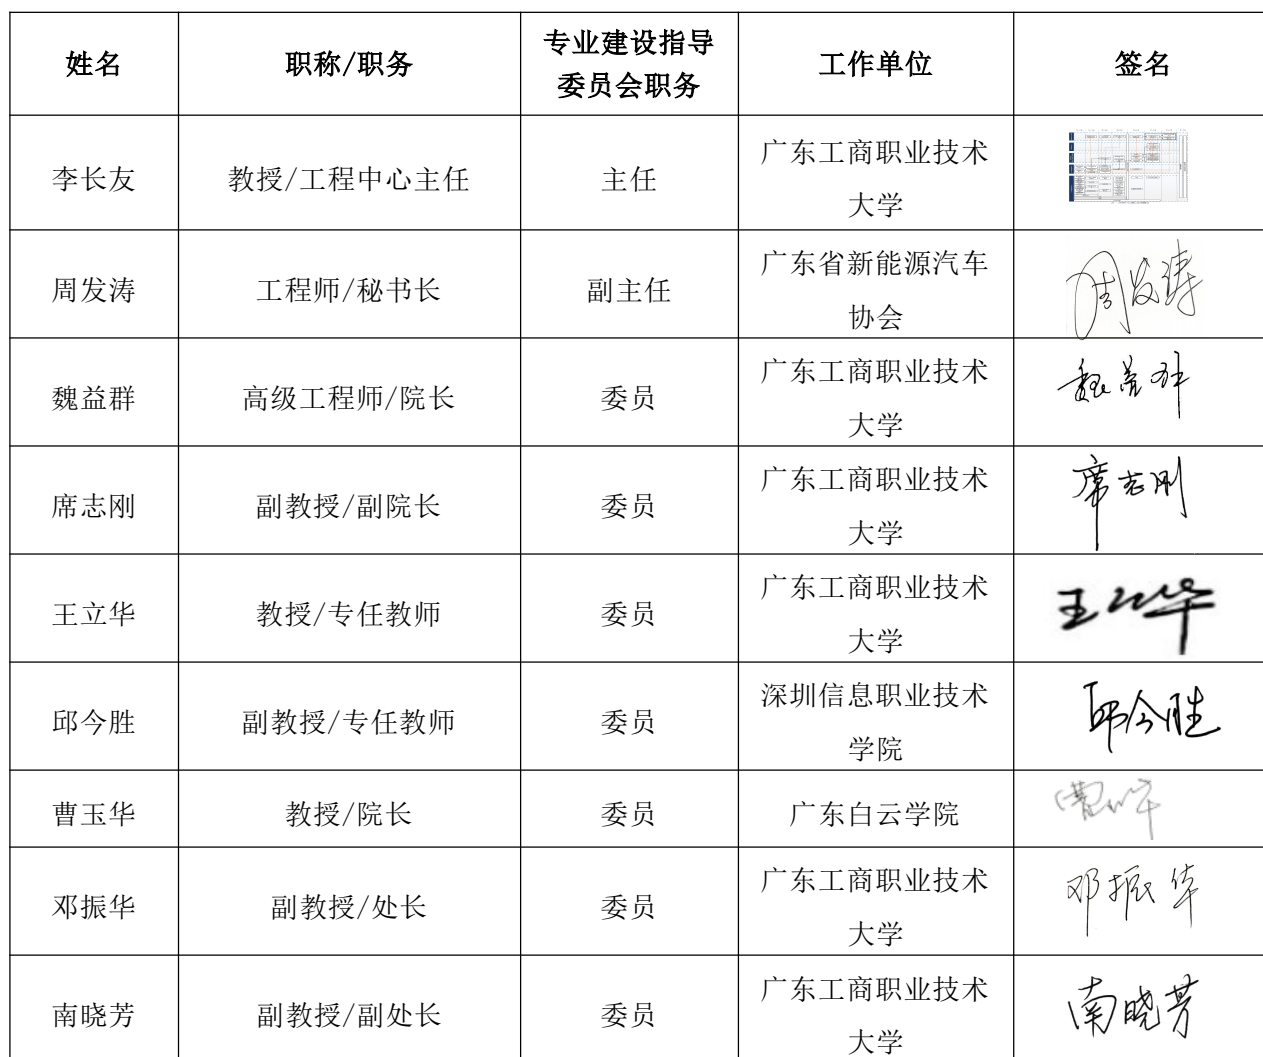 姓名 职称/职务 专业建设指导 工作单位 签名
委员会职务
李长友 教授/工程中心主任 主任 广东工商职业技术
大学
周发涛 工程师/秘书长 副主任 广东省新能源汽车 周发涛
协会
魏益群 高级工程师/院长 委员 广东工商职业技术 魏益群
大学
席志刚 副教授/副院长 委员 广东工商职业技术 席志刚
大学
王立华 教授/专任教师 委员 广东工商职业技术 王立华
大学
邱今胜 副教授/专任教师 委员 深圳信息职业技术 邱今胜
学院
曹玉华 教授/院长 委员 广东白云学院 曹玉华
邓振华 副教授/处长 委员 广东工商职业技术 邓振华
大学
南晓芳 副教授/副处长 委员 广东工商职业技术 南晓芳
大学